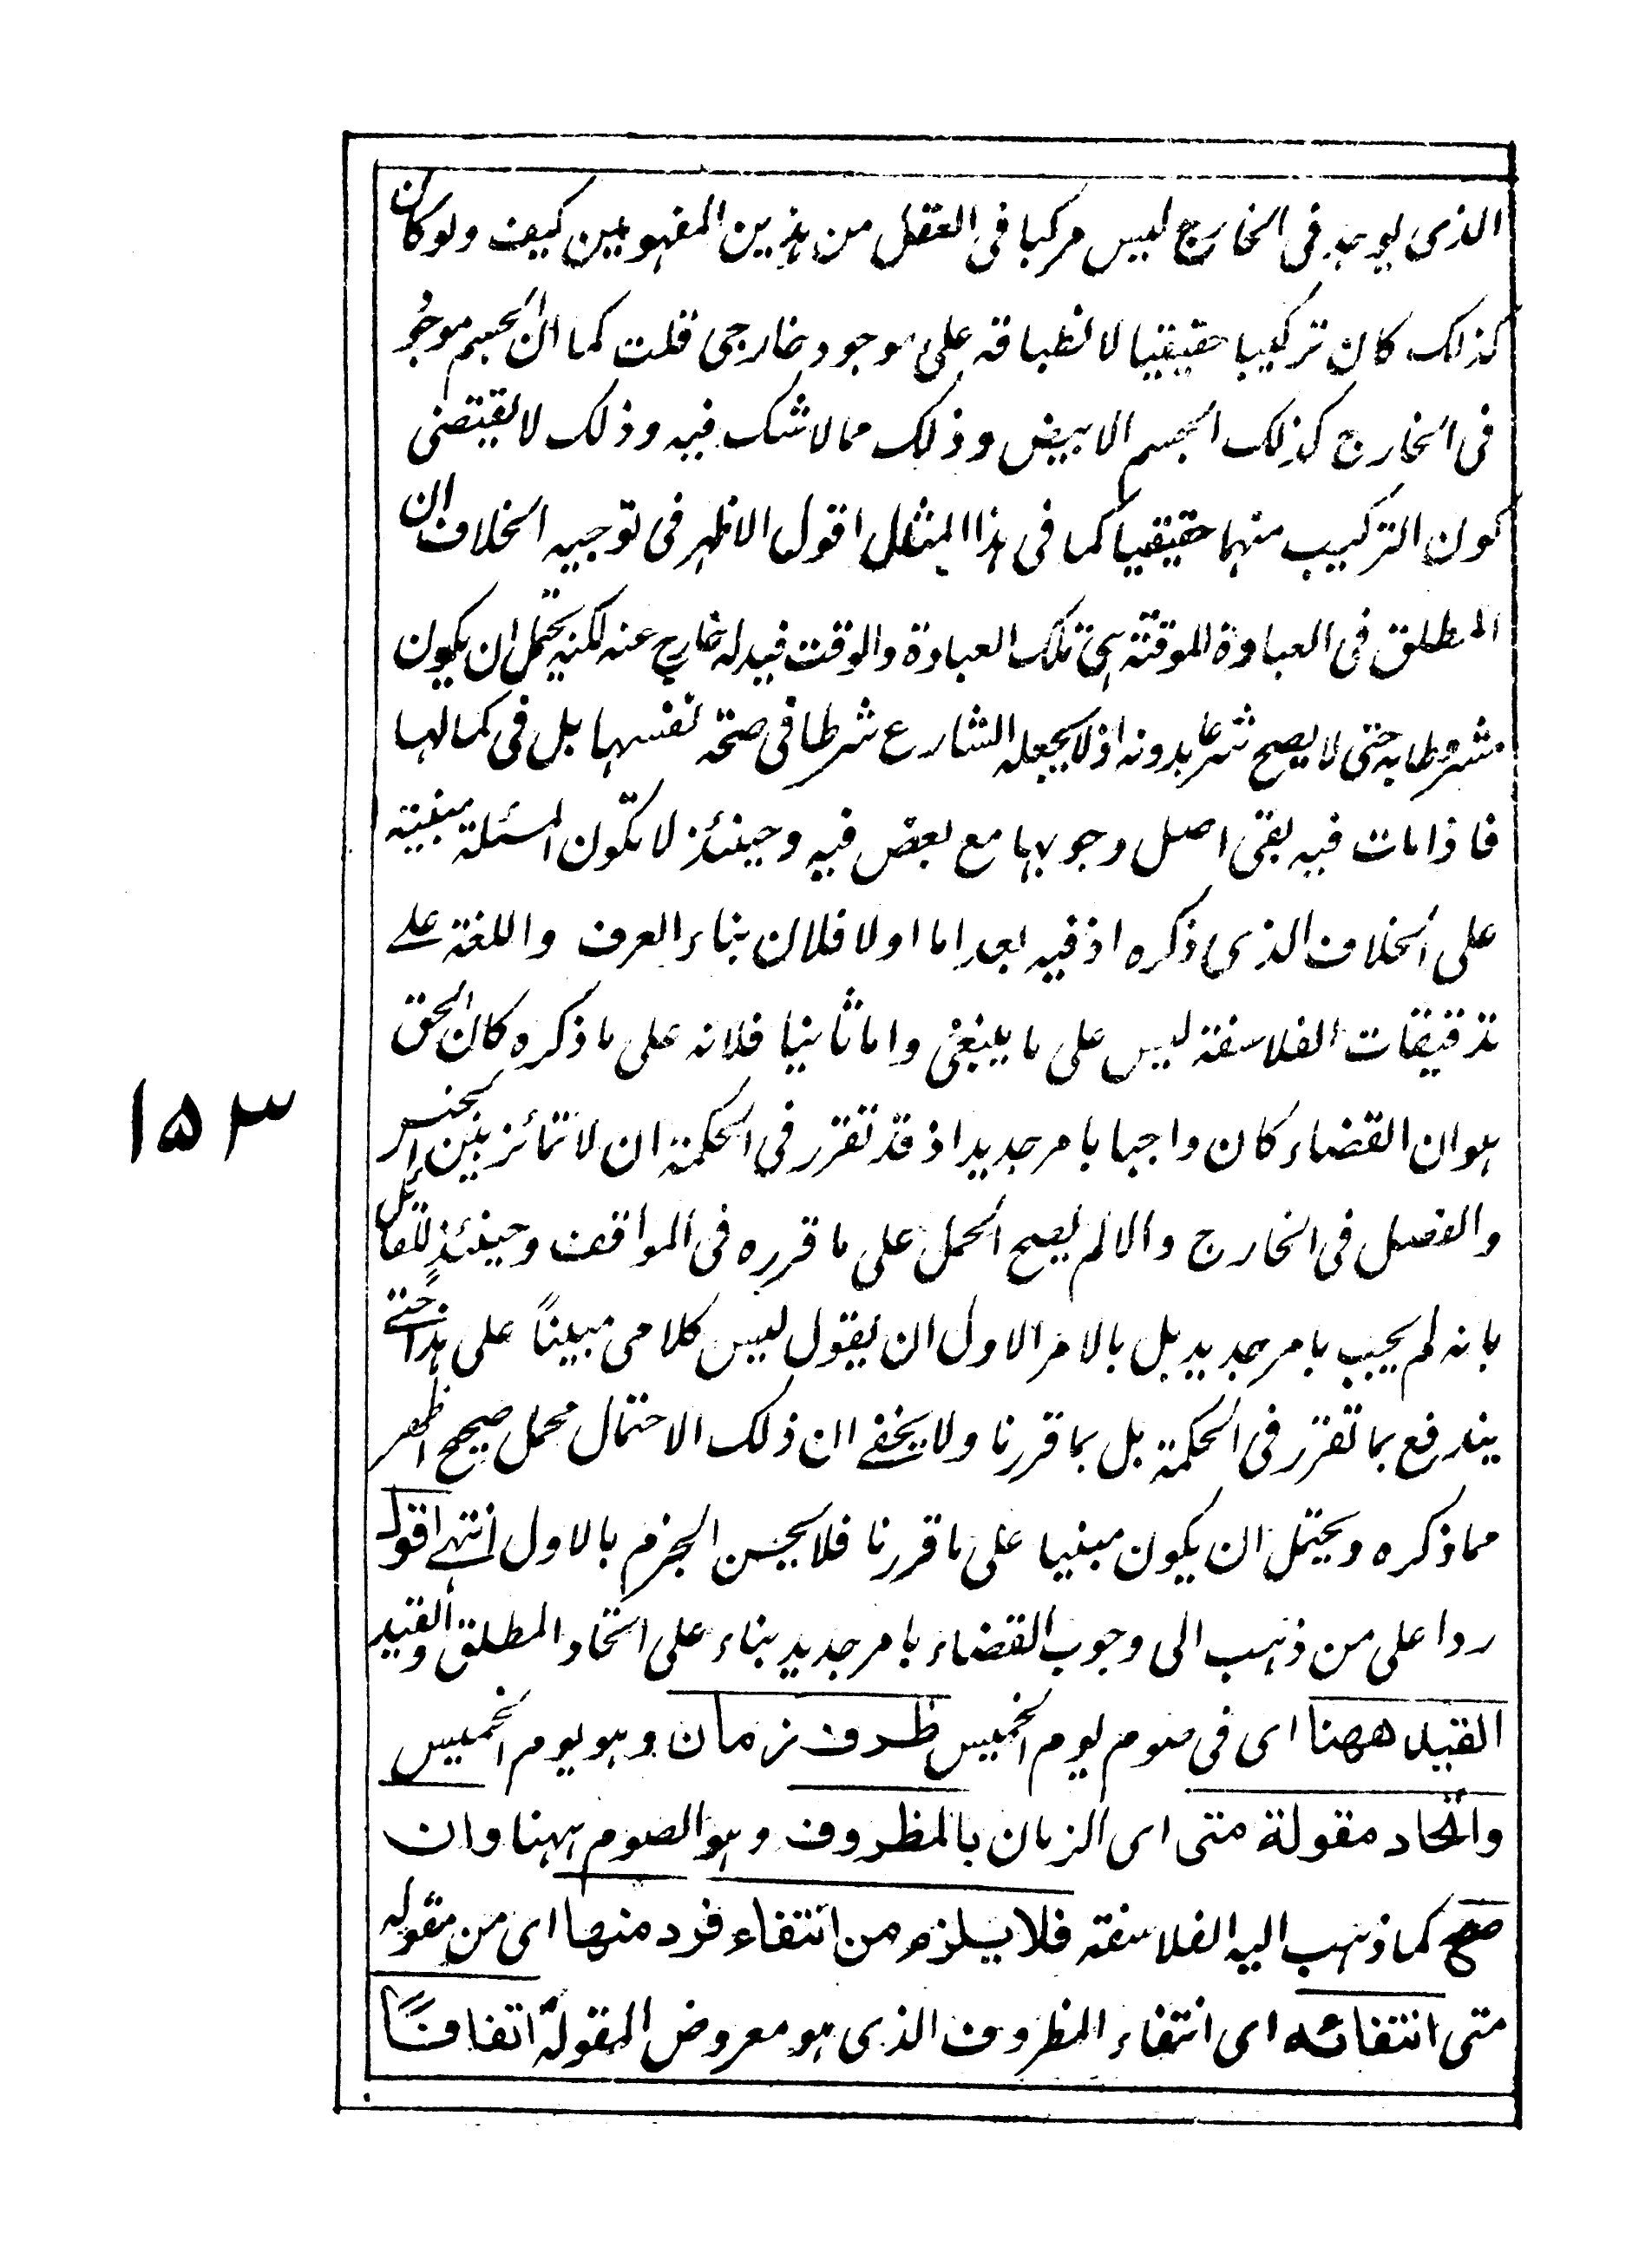 الذی یوجد فی الخارج لیس مرکبا فی العقل من هذین المفهومین کیف ولوکان
کذلک کان ترکیبا حقیقیا لانطباقه علی موجود خارجی قلت کما ان الجسم موجود
فی الخارج کذلک الجسم الابیض و ذلک مما لا شک فیه و ذلک لا یقتضی
کون الترکیب منهما حقیقیا کما فی هذا المثال اقول الاظهر فی توجیه الخلاف ان
المطلق فی العبادة الموقتة هی تلک العبادة والوقت قید له خارج عنه لکنه یحتمل ان یکون
مشروطا به حتی لا یصح شرعا بدونه اذ لا یجعله الشارع شرطا فی صحة نفسها بل فی کمالها
فاذا مات فیه بقی اصل وجوبها مع بعض فیه وحینئذ لا تکون المسئلة مبنیة
علی الخلاف الذی ذکره اذ فیه بعد اما اولا فلان بناء العرف واللغة علے
تدقیقات الفلاسفة لیس علی ما ینبغی واما ثانیا فلانه علی ما ذکره کان الحق
هو ان القضاء کان واجبا بامر جدید اذ قد تقرر فی الحکمة ان لا تمائز بین الجنس
والفصل فی الخارج والا لم یصح الحمل علی ما قرره فی المواقف وحینئذ للقائل
بانه لم یجب بامر جدید بل بالامر الاول ان یقول لیس کلامی مبیناً علی هذا حتے
یندفع بما تقرر فی الحکمة بل بما قررنا ولا یخفے ان ذلک الاحتمال محمل صحیح اظهر
مما ذکره ویحتمل ان یکون مبنیا علی ما قررنا فلا یحسن الجزم بالاول انتهے اقول
ردا علی من ذهب الی وجوب القضاء بامر جدید بناء علی اتحاد المطلق والقید
القید ههنا ای فی صوم یوم الخمیس ظرف زمان وهو یوم الخمیس
واتحاد مقولة متی ای الزمان بالمظروف وهو الصوم ههنا وان
صح کما ذهب الیه الفلاسفة فلا یلزم من انتفاء فرد منها ای من مقولة
متی انتفائه ای انتفاء المظروف الذی هو معروض المقولة اتفاقاً
۱۵۳